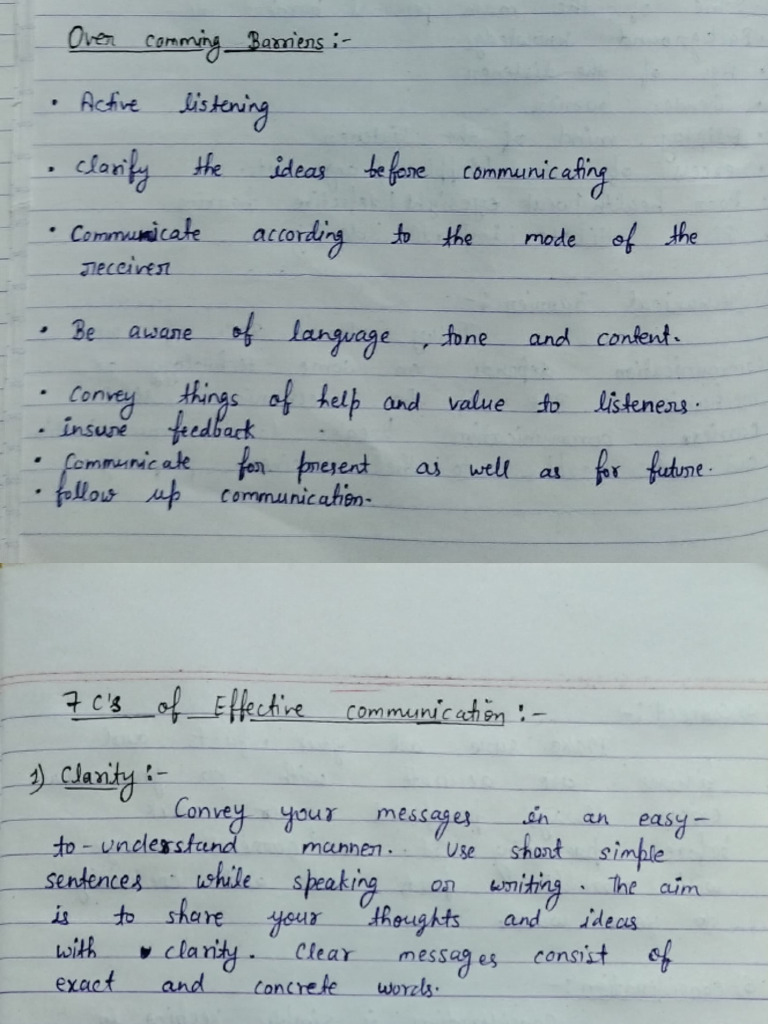 Over comming Barriers :-
• Active listening
• clarify the ideas before communicating
• Communicate according to the mode of the
receiver
• Be aware of language, tone and content.
• Convey things of help and value to listeners.
• insure feedback
• Communicate for present as well as for future.
• follow up communication.
7 C's of Effective communication :-
1) Clarity :-
Convey your messages in an easy-
to-understand manner. Use short simple
sentences while speaking or writing. The aim
is to share your thoughts and ideas
with clarity. Clear messages consist of
exact and concrete words.